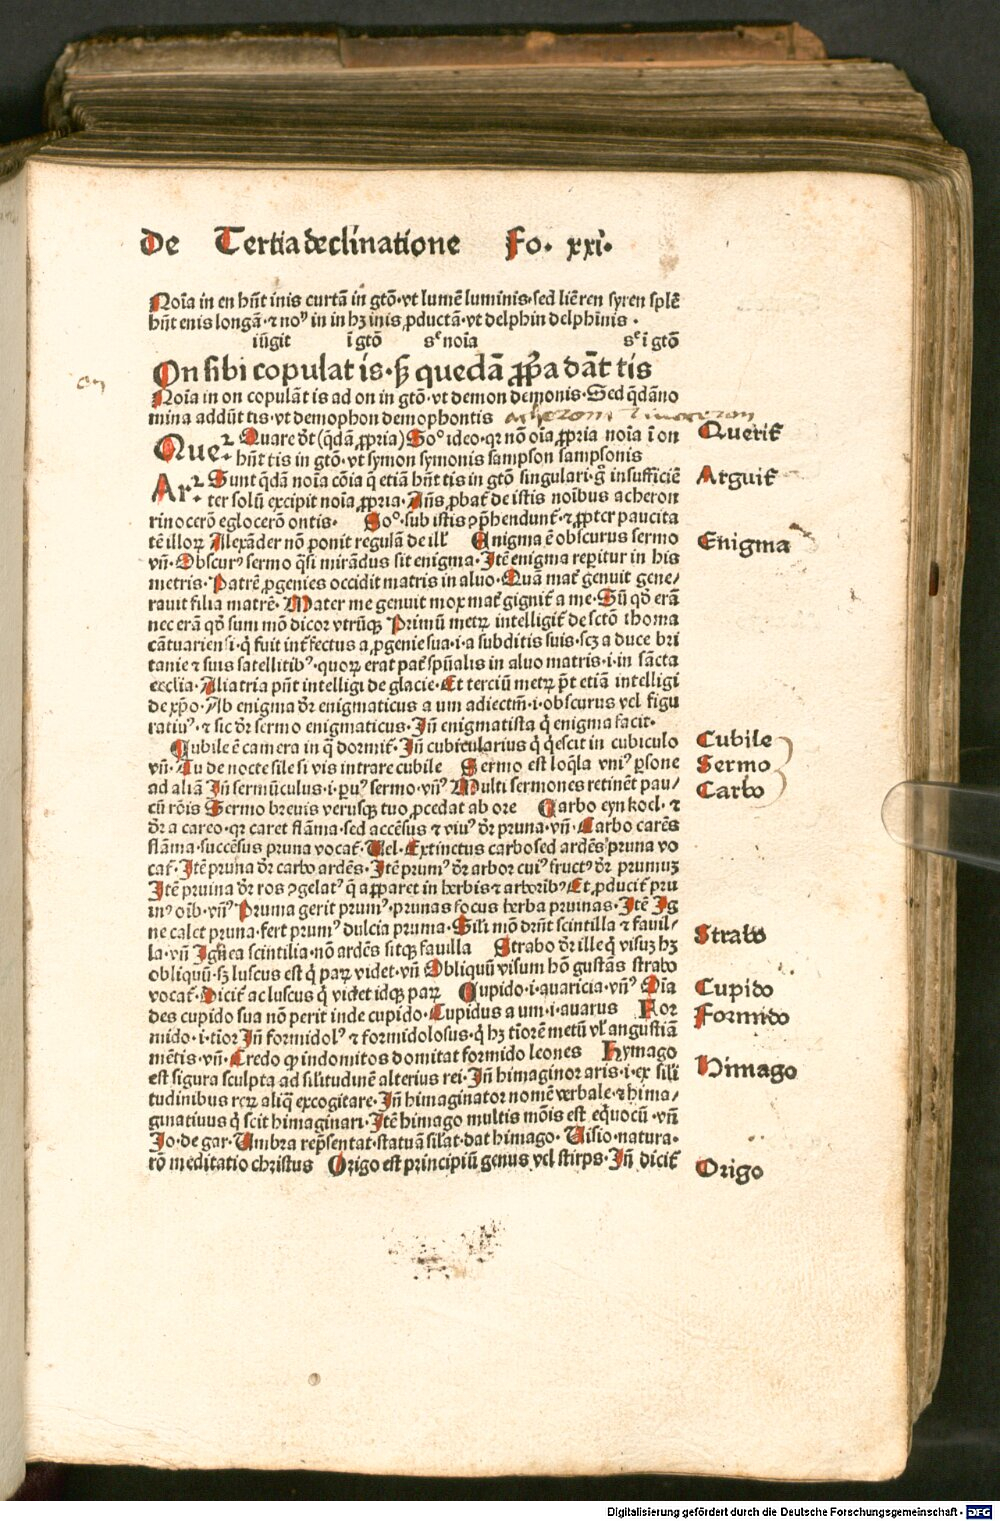 De Tertia declinatione Fo. xxi.
Noīa in en hn̄t inis curtā in gtō·vt lumē luminis·sed liē ren syren splē
hn̄t enis longā·⁊ noꝰ in in hꝫ inis ꝓductā·vt delphin delphinis·
iūgit ī gtō sꝫ noīa sꝫ ī gtō
On sibi copulat is·sꝫ quedā ꝓpͥa dāt tis
on
Noīa in on copulāt is ad on in gtō·vt demon demonis·Sed q̄dā no
mina addūt tis·vt demophon demophontis
Que⁊· Quare dr̄t (q̄dā ꝓpria) Soᵒ ideo·qꝛ nō oīa ꝓpria noīa ī on
hn̄t tis in gtō·vt symon symonis sampson sampsonis
Querit̄
Ar⁊· Sunt q̄dā noīa cōia q̄ etiā hn̄t tis in gtō singulari·g̊ insufficiē
ter solū excipit noīa ꝓpria·Añs ꝓbat̄ de istis noībus acheron
Arguit̄
rinocerō eglocerō ontis· Soᵒ·sub istis ꝯp̄hendunt̄·⁊ ꝓpter paucita
tē illoꝝ Alexāder nō ponit regulā de ill̄ Enigma ē obscurus sermo
Enigma
vn̄·Obscurꝰ sermo q̄si mirādus sit enigma·Itē enigma reꝑitur in his
metris·Patrē ꝓgenies occidit matris in aluo·Quā mat̄ genuit gene/
rauit filia matrē·Mater me genuit mox mat̄ gignit̄ a me·Sū qd̄ erā
nec erā qd̄ sum mō dicor vtrūqꝫ Primū metꝝ intelligit̄ de sctō thoma
cātuariensi·q̄ fuit int̄fectus a ꝓgenie sua·i·a subditis suis·scꝫ a duce bri
tanie ⁊ suis satellitibꝰ·quoꝝ erat pat̄ spūalis in aluo matris·i·in sācta
ecclia·Alia tria pn̄t intelligi de glacie·Et terciū metꝝ pt̄ etiā intelligi
de xp̄o·Ab enigma dr̄ enigmaticus a um adiectm̄·i·obscurus vel figu
ratiuꝰ·⁊ sic dr̄ sermo enigmaticus·In̄ enigmatista q̄ enigma facit·
Cubile ē camera in q̄ dormit̄·In̄ cubicularius q̄ q̄escit in cubiculo
Cubile
vn̄·Tu de nocte sile si vis intrare cubile Sermo est loq̄la vniꝰ ꝑsone
Sermo
ad aliā In̄ sermūculus·i·ꝑuꝰ sermo·vn̄ꝰ Multi sermones retinēt pau/
Carbo
cū rōis Sermo breuis verusqꝫ tuo ꝓcedat ab ore Carbo eyn kocl·⁊
dr̄ a careo·qꝛ caret flāma·sed accēsus ⁊ viuꝰ dr̄ pruna·vn̄·Carbo carēs
flāma·succēsus pruna vocat̄·Uel·Extinctus carbo sed ardēs pruna vo
cat̄·Itē pruna dr̄ carbo ardēs·Itē prumꝰ dr̄ arbor cuiꝰ fructꝰ dr̄ prunuꝫ
Itē pruina dr̄ ros ꝯgelatꝰ q̄ apparet in herbis ⁊ arboribꝰ Et ꝓducit̄ pru
inꝰ oīb·vn̄ꝰ Pruma gerit prumꝰ·prunas focus herba pruinas·Itē Ig
ne calet pruna·fert prumꝰ dulcia pruma·Sīli mō drn̄t scintilla ⁊ fauil/
la·vn̄ Ignea scintilia·nō ardēs sitqꝫ fauilla Strabo dr̄ ille q̄ visuꝫ hꝫ
Strabo
obliquū·sꝫ luscus est q̄ parꝝ videt·vn̄ Obliquū visum hō gustās strabo
vocat̄·Dicit̄ ac luscus q̄ videt idqꝫ parꝝ Cupido·i·auaricia·vn̄ꝰ Dīa
Cupido
des cupido sua nō perit inde cupido·Cupidus a um·i·auarus For
Formido
mido·i·tīor In̄ formidolꝰ ⁊ formidolosus·q̄ hꝫ tīorē metū vl̄ angustiā
mētis·vn̄·Credo ꝙ indomitos domitat formido leones Hymago
Himago
est figura sculpta ad silitudinē alterius rei·In̄ himaginor aris·i·ex sili
tudinibus reꝝ aliq̄ excogitare·In̄ himaginator nomē verbale·⁊ hima/
ginatiuus q̄ scit himaginari·Itē himago multis mōis est eq̄uocū·vn̄
Jo·de gar·Umbra rep̄sentat·statuā sīlat·dat himago·Uisio·natura·
rō meditatio christus Origo est principiū genus vel stirps·In̄ dicit̄
Origo
Digitalisierung gefördert durch die Deutsche Forschungsgemeinschaft - DFG